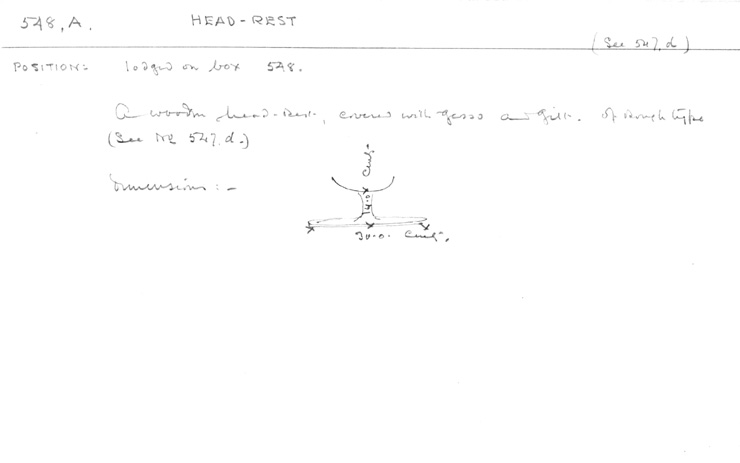 548, A. HEAD-REST
(See 547, d)
POSITION:- lodged on box 548.
A wooden head-rest, covered with gesso and gilt. Of rough type
(See No 547, d.)
Dimensions :-
14.0 Cent.
30.0. Cent.